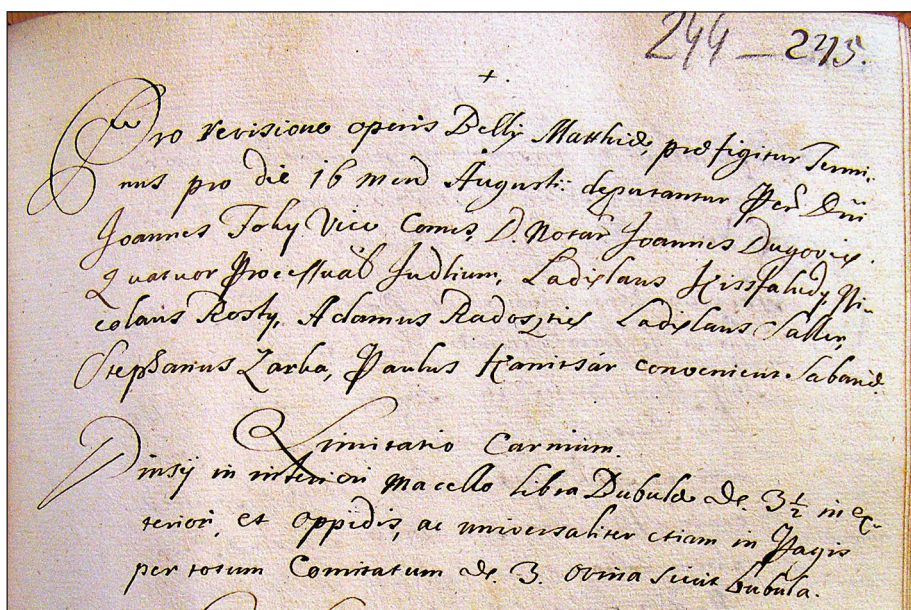 244 – 245.
+.
Pro revisione operis Belly Matthiæ, præfigitur Termi-
nus pro die 16 Augusti: deputantur Dni
Joannes Tohy Vice Comes, D. Notar Joannes Dugovis.
Quatuor Processual Judlium, Ladislaus Kissfaludy, Ni-
colaus Rosty, Adamus Radosztics Ladislaus Saller,
Stephanus Zarka, Paulus Kanitsár convenient Sabariæ
Limitatio Carnium.
in interiori macello libra Bubulæ dr. 3½ in ex-
teriori, et oppidis, ac universaliter etiam in Pagis
per totum Comitatum dr. 3. ovina sicut bubula.